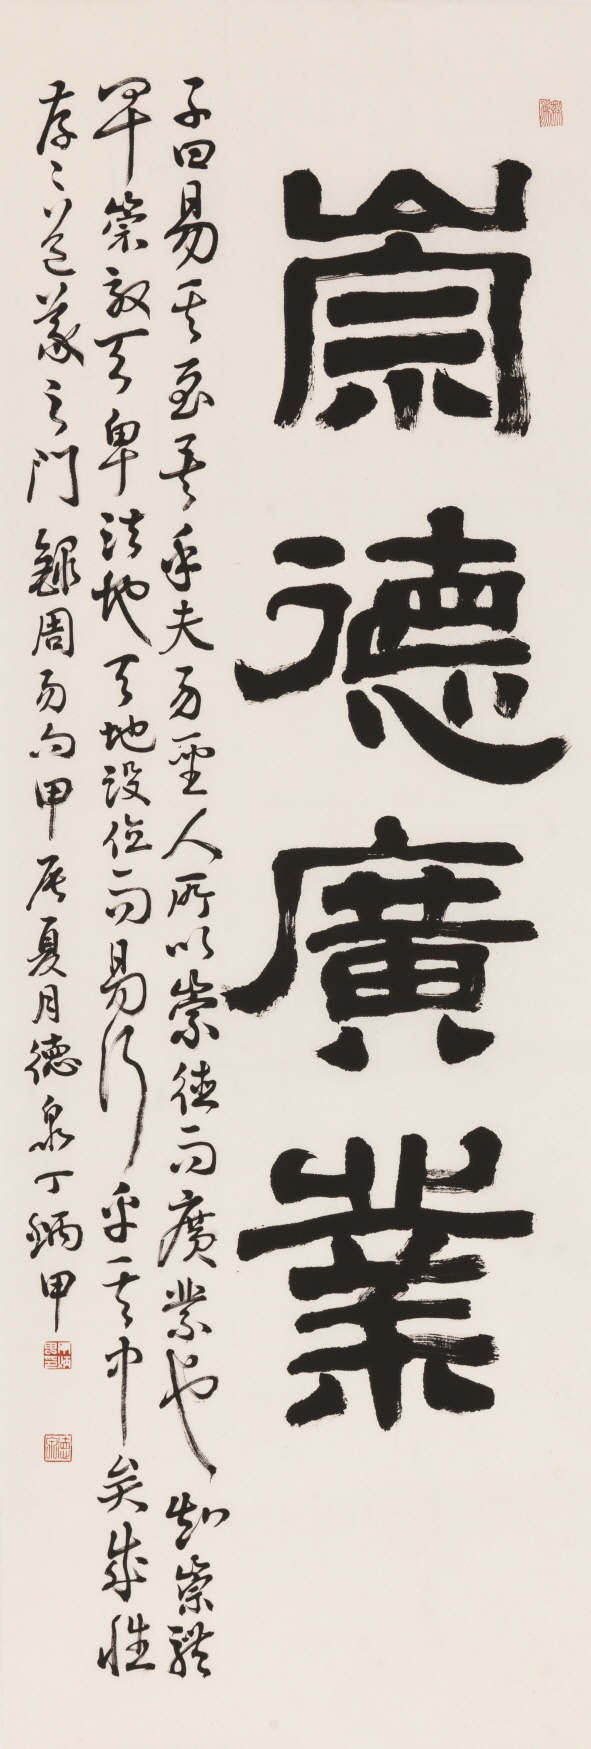 崇德廣業
子曰易其至矣乎夫易聖人所以崇德而廣業也知崇禮
卑崇效天卑法地天地設位而易行乎其中矣成性
存々道義之門 錄周易句甲辰夏月德泉丁炳甲